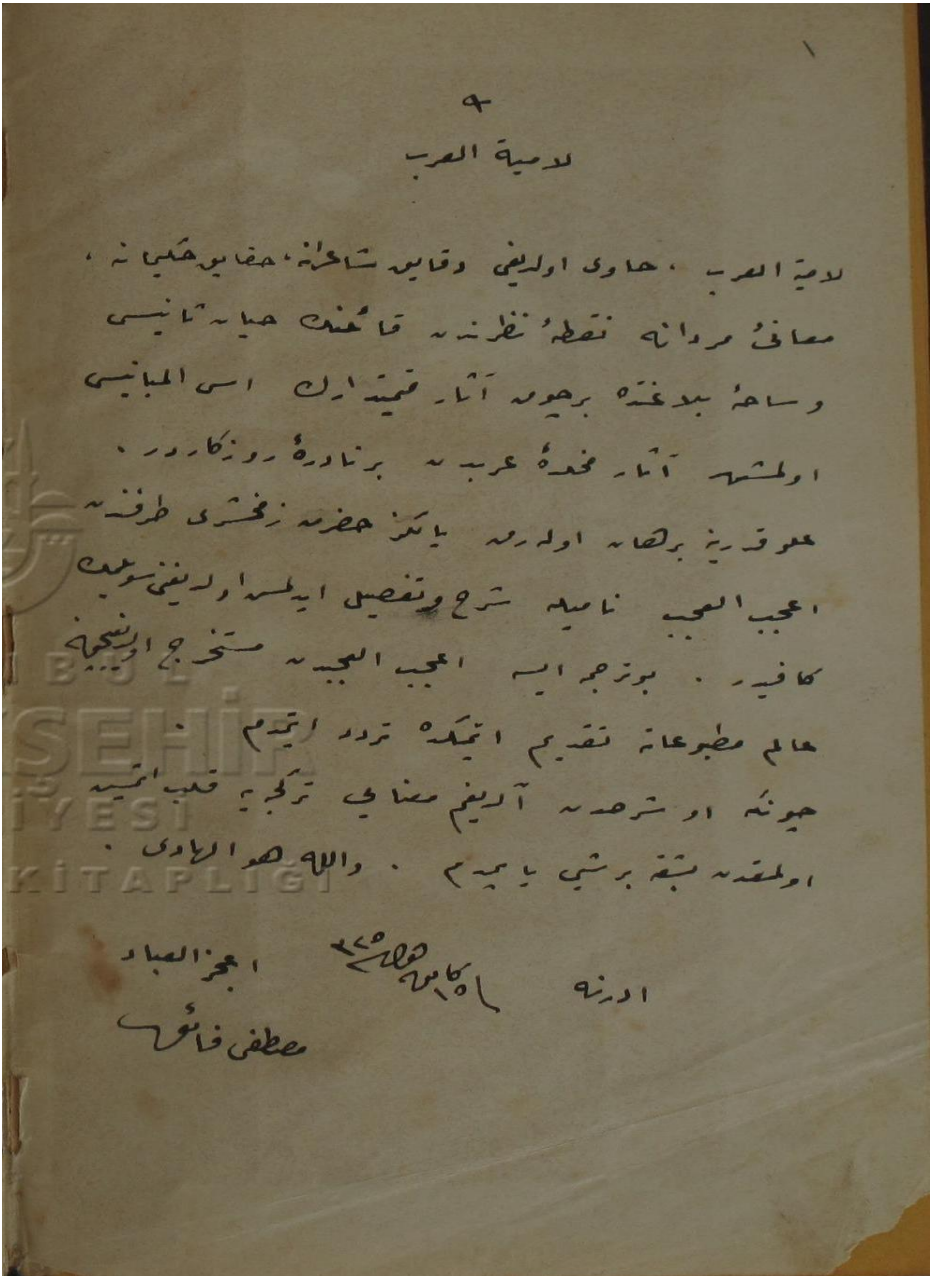 ١
٩
لامية العرب
لامية العرب ، حاوى اولديغى دقايق شاعرانه، حقايق حكيمانه ،
معانئ مردانه نقطۀ نظرندن قائلنك حيات ثانيسى
وساحۀ بلاغتده برچوق آثار قيمتدارك اس المبانيسى
اولمشدر آثار مخلدۀ عربدن بر نادرۀ روزكاردر .
علو قدرينه برهان اوله رق يالكز حضرت زمخشرى طرفندن
اعجب العجب ناميله شرح و تفصيل ايدلمش اولديغنى سويلمك
كافيدر . بوترجمه ايسه اعجب العجبدن مستخرج اولديغيچون
عالم مطبوعاته تقديم ايتمكده تردد ايتمدم .
چونكه او شرحدن آلديغم معنايى تركجه يه قلب ايتمش
اولمقدن بشقه برشى يايمدم . والله هو الهادى .
ادرنه ١٥ ٣٢٥ اعجز العباد
مصطفى فائق
İBUL
KŞEHİR
İYESİ
KİTAPLIĞI